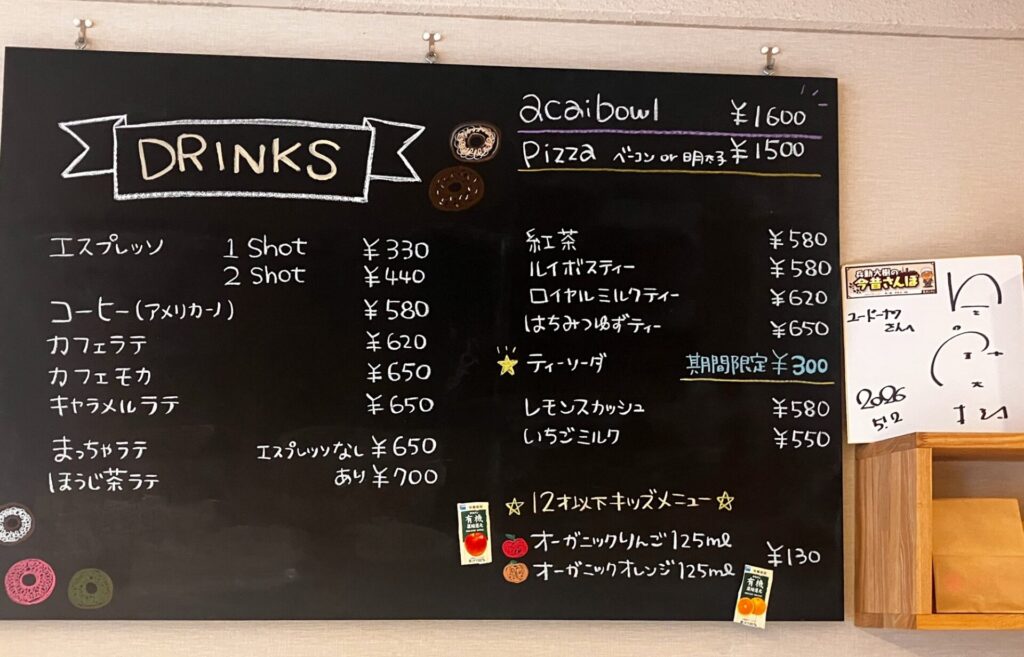 DRINKS
エスプレッソ 1 Shot ¥330
2 Shot ¥440
コーヒー(アメリカーノ) ¥580
カフェラテ ¥620
カフェモカ ¥650
キャラメルラテ ¥650
まっちゃラテ エスプレッソなし ¥650
ほうじ茶ラテ あり ¥700
acaibowl ¥1600
pizza ベーコン or 明太子 ¥1500
紅茶 ¥580
ルイボスティー ¥580
ロイヤルミルクティー ¥620
はちみつゆずティー ¥650
ティーソーダ 期間限定 ¥300
レモンスカッシュ ¥580
いちごミルク ¥550
12才以下キッズメニュー
オーガニックりんご 125ml ¥130
オーガニックオレンジ 125ml
有機
有機
兵動大樹の
今昔さんぽ
ユードーナツ
さんへ
2026
5.2